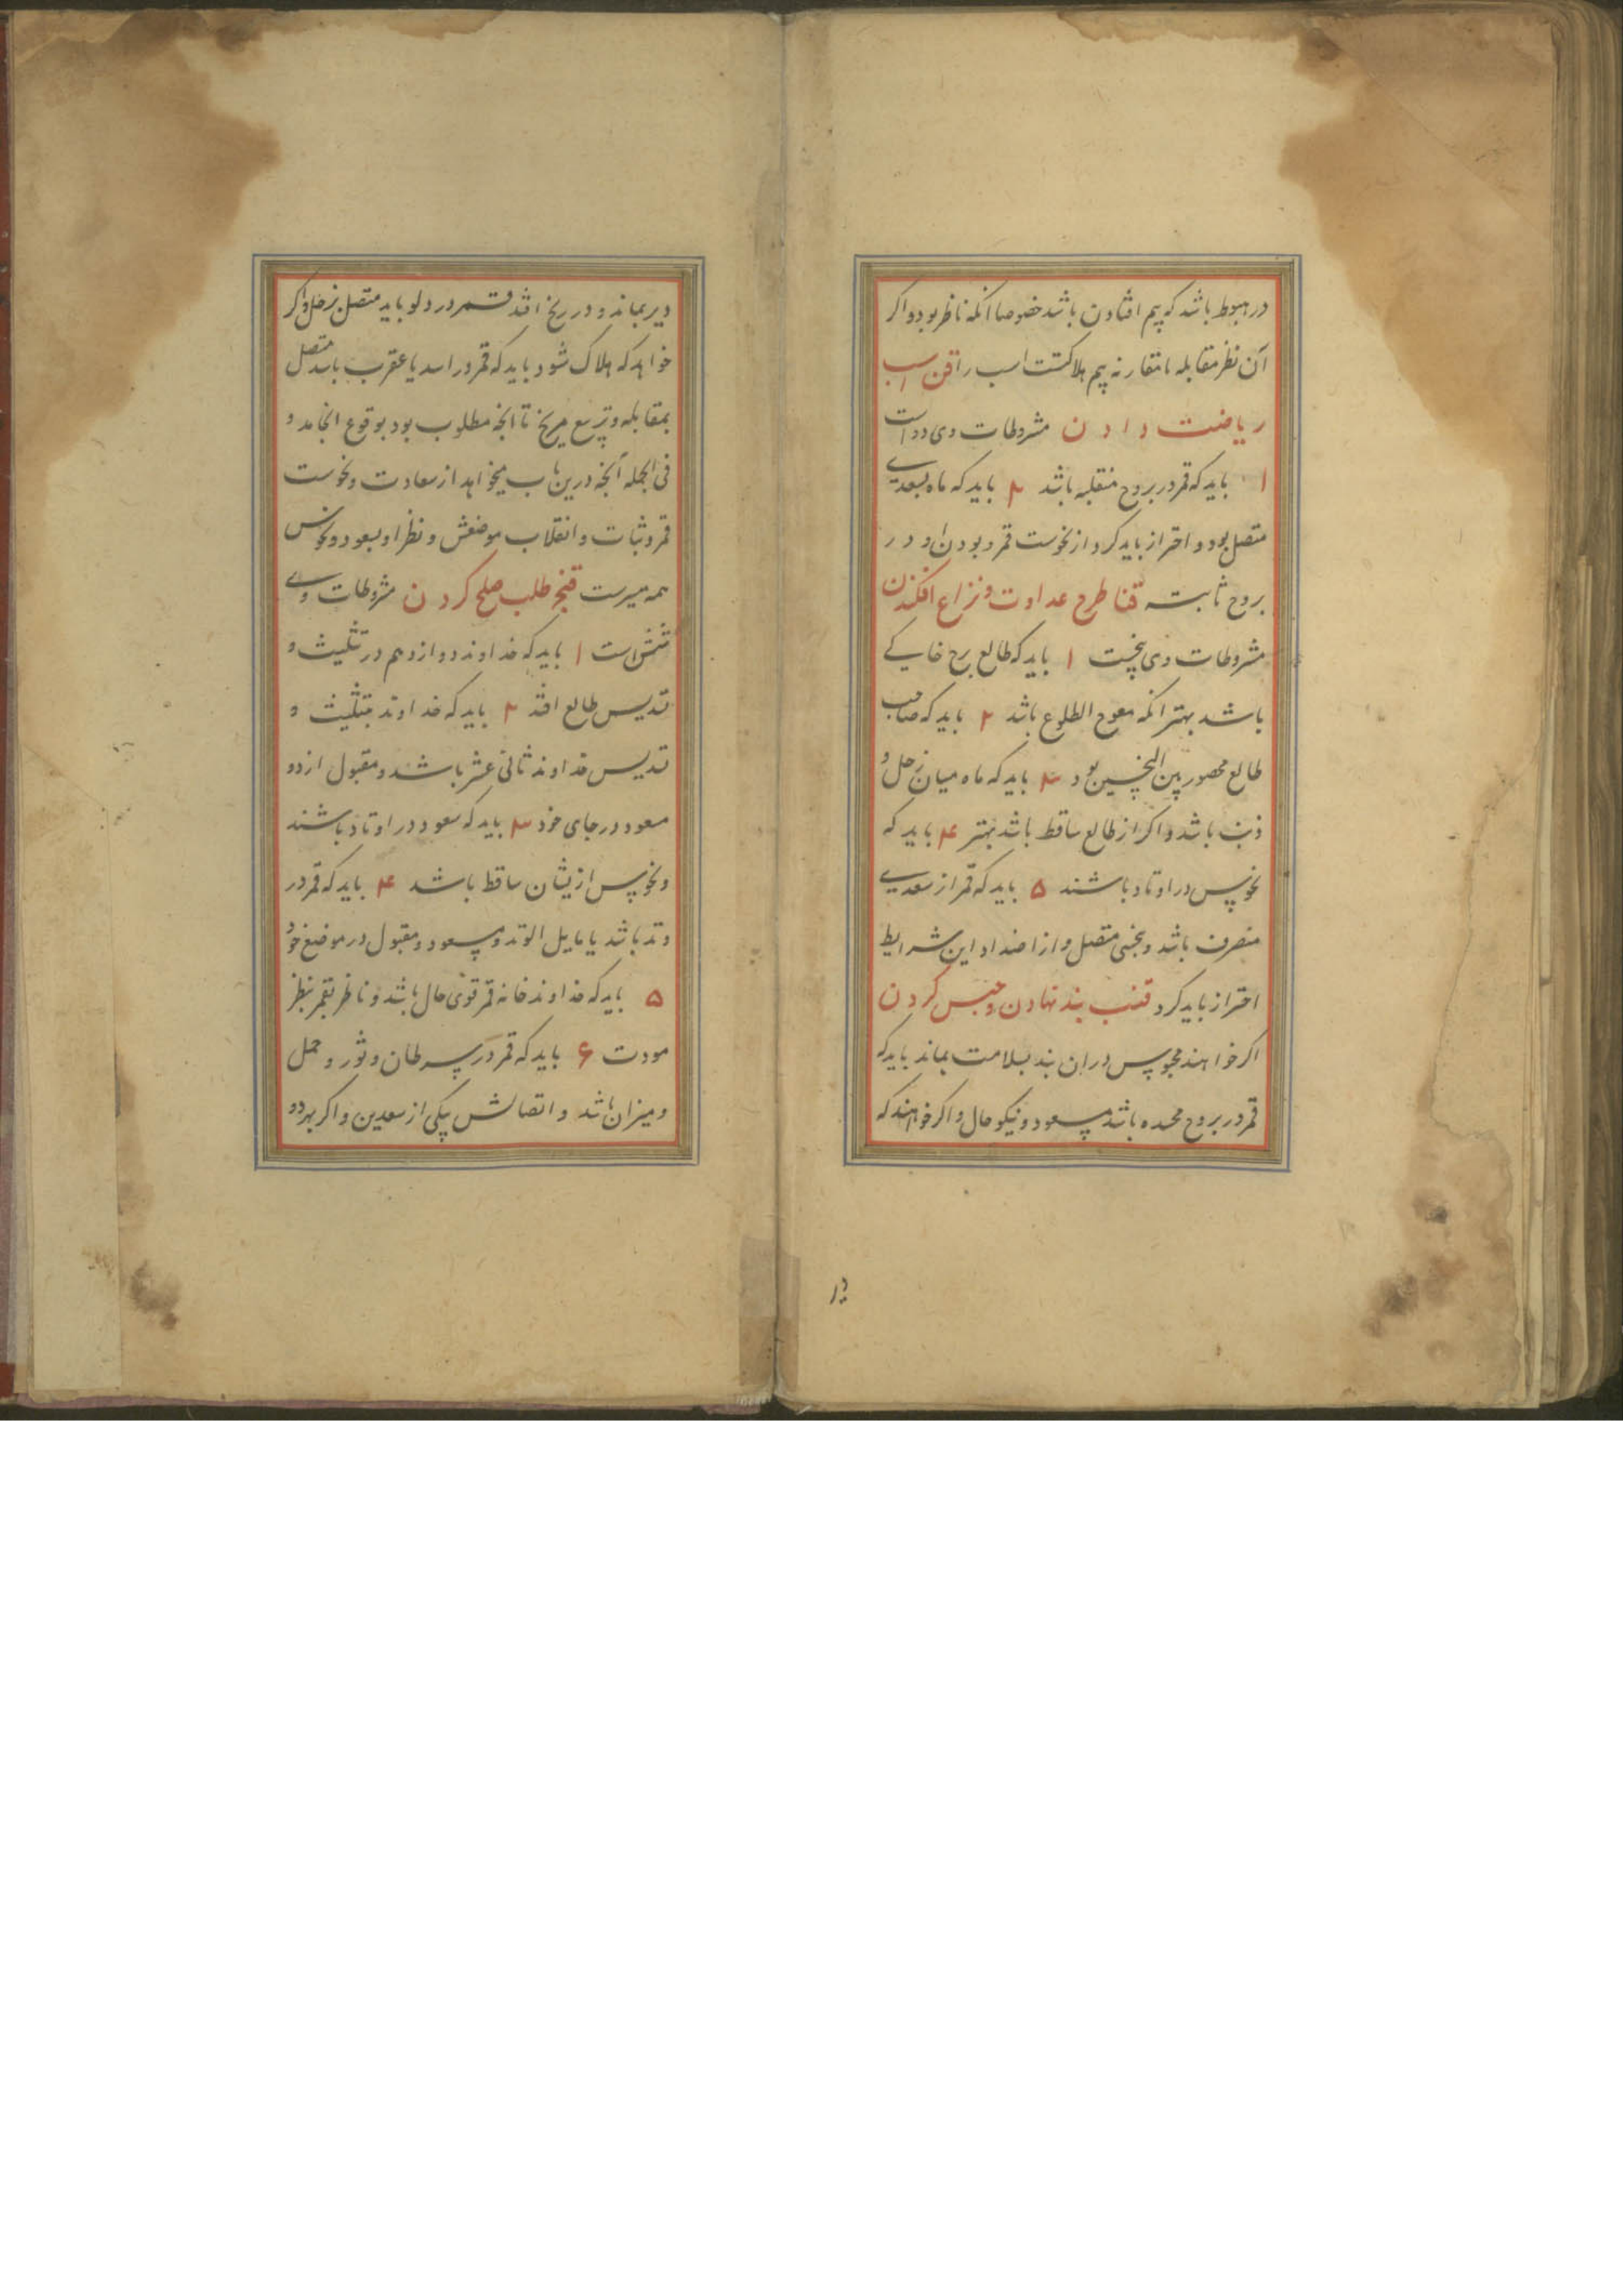 در هبوط باشد که بیم افتادن باشد خصوصا انکه ناظر بود و اکر
آن نظر مقابله یا مقارنه بیم هلاکتست اسب را قن اسب
ریاضت دادن مشروطات وی دو است
۱ باید که قمر در بروج منقلبه باشد ۲ باید که ماه بسعدی
متصل بود و احتراز باید کرد از نحوست قمر و بودن او در
بروج ثابته قنا طرح عداوت و نزاع افکندن
مشروطات وی پنجست ۱ باید که طالع برج خاکی
باشد بهتر انکه معوج الطلوع باشد ۲ باید که صاحب
طالع محصور بین النحسین بود ۳ باید که ماه میان زحل و
ذنب باشد و اکر از طالع ساقط باشد بهتر ۴ باید که
نحوس در اوتاد باشند ۵ باید که قمر از سعدی
منصرف باشد و بنحسی متصل و از اضداد این شرایط
احتراز باید کرد قنب بند نهادن و حبس کردن
اکر خواهند محبوس در ان بند بسلامت بماند باید که
قمر در بروج محسده باشد مسعود و نیکو حال و اکر خواهند که
دیر
دیر بماند و در رنج افتد قمر در دلو باید متصل بزحل و اکر
خواهد که هلاک شود باید که قمر در اسد یا عقرب باشد متصل
بمقابله و تربیع مریخ تا انچه مطلوب بود بوقوع انجامد و
فی الجمله آنچه درین باب میخواهد از سعادت و نحوست
قمر و ثبات و انقلاب موضعش و نظر او بسعود و نحوس
همه میسرست قنج طلب صلح کردن مشروطات وی
شش است ۱ باید که خداوند دوازدهم در تثلیث و
تسدیس طالع افتد ۲ باید که خداوند بتثلیث و
تسدیس خداوند ثانی عشر باشند و مقبول از دو
مسعود در جای خود ۳ باید که سعود در اوتاد باشند
و نحوس ازیشان ساقط باشد ۴ باید که قمر در
وتد باشد یا مایل الوتد و مسعود و مقبول در موضع خود
۵ باید که خداوند خانه قمر قوی حال باشد و ناظر بقمر بنظر
مودت ۶ باید که قمر در سرطان و ثور و حمل
و میزان باشد و اتصالش بیکی از سعدین و اکر بهر دو